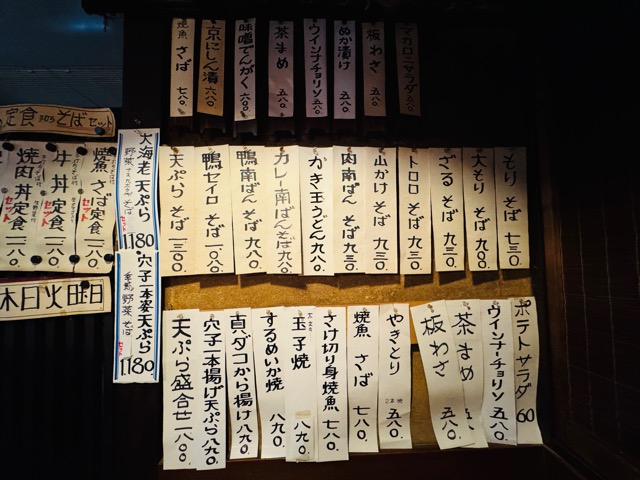 マカロニサラダ 五八〇
板わさ 五八〇
ぬか漬け 五八〇
ウインナチョリソ 五八〇
茶まめ 五八〇
味噌でんがく 六八〇
京にしん漬 六八〇
焼魚 さば 七八〇
もり そば 七三〇
大もり そば 九〇〇
ざる そば 九三〇
トロロ そば 九三〇
山かけ そば 九三〇
肉南ばん そば 九三〇
かき玉うどん 九八〇
カレー南ばんそば 九八〇
鴨南ばん そば 九八〇
鴨セイロ そば 一〇八〇
天ぷら そば 一三〇〇
大海老 天ぷら
そば
セット
1180
穴子一本 天ぷら
野菜 そば
セット
1180
定食 そばセット
焼魚 さば定食
セット
一一八〇
牛丼定食
セット
一一八〇
焼肉丼定食
セット
一一八〇
木日火曜日
ポテトサラダ 60
ウインナーチョリソ 五八〇
茶まめ 五八
板わさ 五八〇
やきとり 二本 五八〇
焼魚 さば 七八〇
さけ切り身焼魚 七八〇
玉子焼 八九〇
するめいか焼 八九〇
真ダコから揚げ 八九〇
穴子一本揚げ天ぷら 八九〇
天ぷら盛合せ 一八〇〇